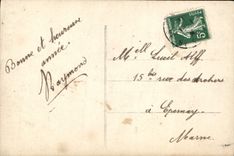 Bonne et heureuse
année.
Raymond
M.ell Luciel Alff.
15 bis rue des Archers
à Epernay
Marne
5